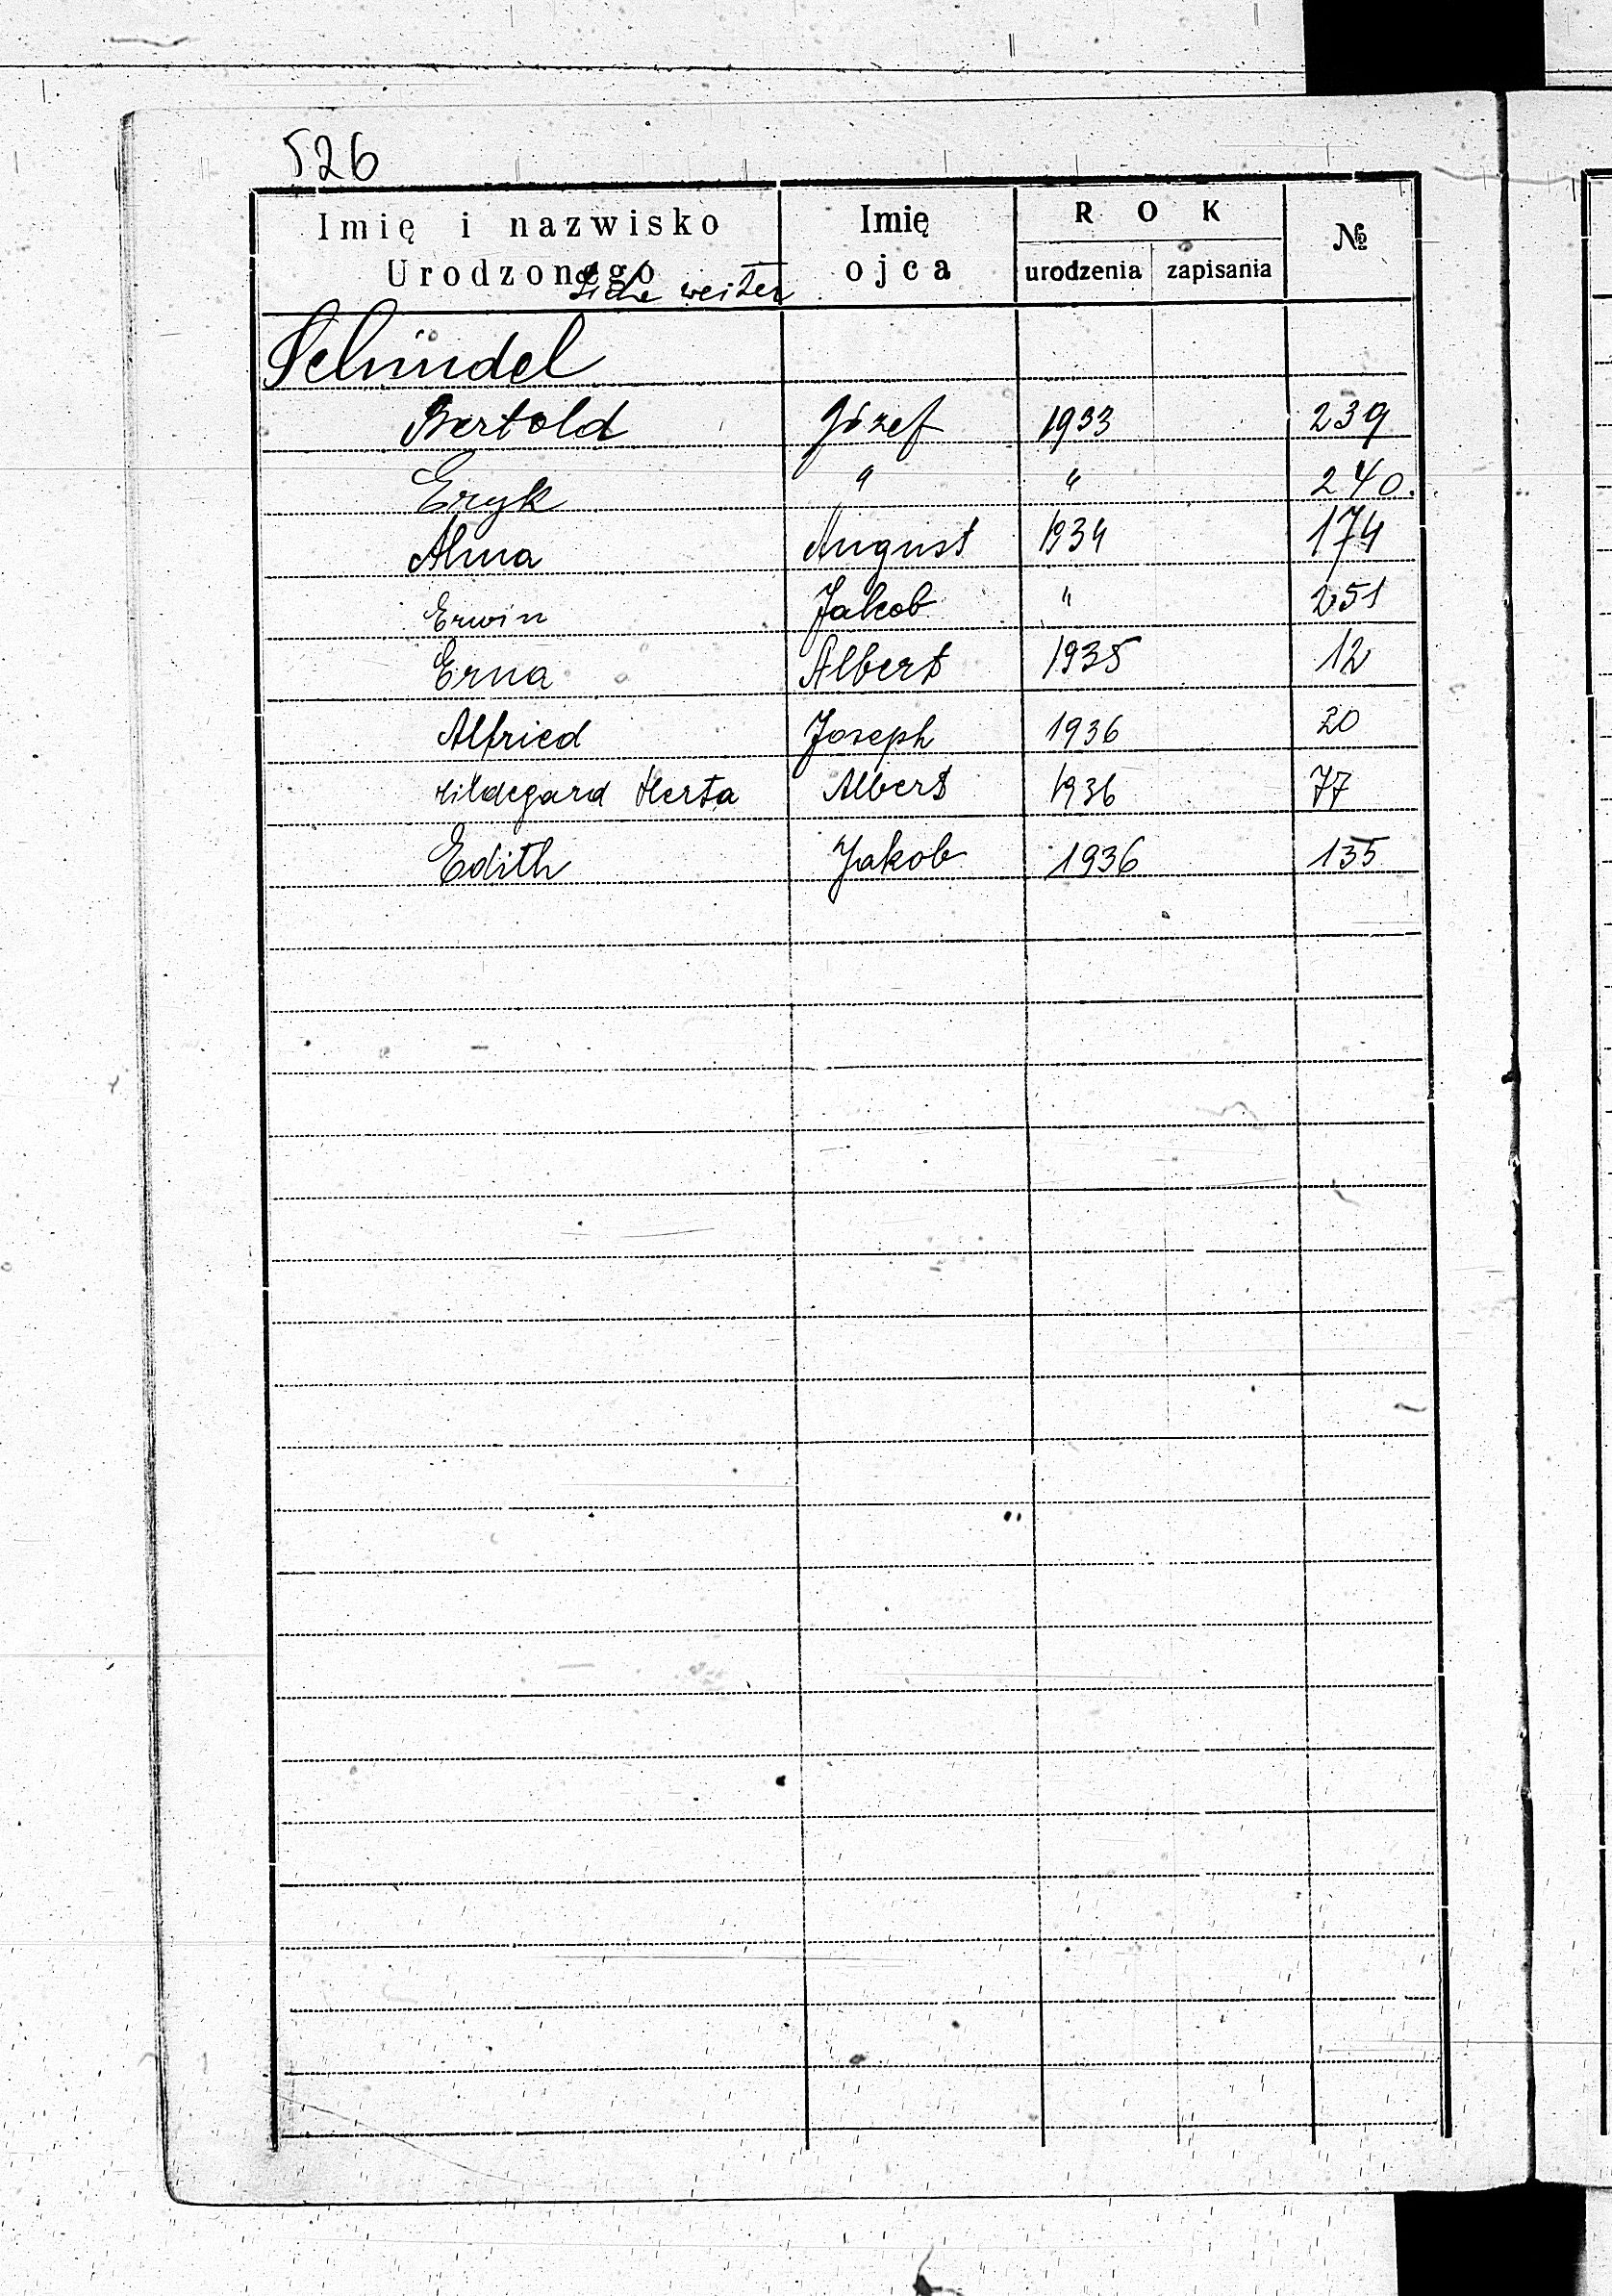 526
Imię i nazwisko Urodzonego
Imię ojca
ROK
urodzenia zapisania
№
Siehe weiter
Schindel
Bertold Józef 1933 239
Eryk " " 240.
Alma August 1934 174
Erwin Jakob " 251
Erna Albert 1935 12
Alfried Joseph 1936 20
Hildegard Herta Albert 1936 77
Edith Jakob 1936 135